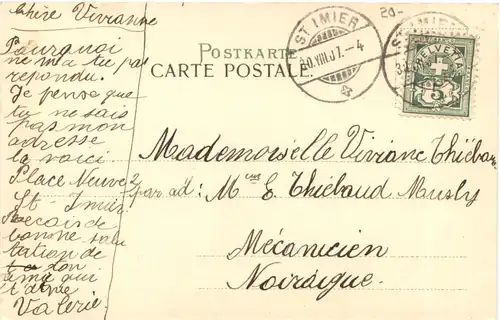 Chère Vivianne
Pourquoi
ne m'a tu pas
repondu.
Je pense que
tu ne sais
pas mon
adresse
la voici
Place Neuve 2
St. Imier.
Recois de
bonne salu
tation de
ton
amie qui
t'aime
Valerie.
20-
POSTKARTE
CARTE POSTALE.
ST IMIER
30.VIII.07.-4
ST IMIER
HELVETIA
5
Mademoiselle Viviane Thiébau
par ad: Mr E. Thiébaud
Mécanicien
Noiraigue.